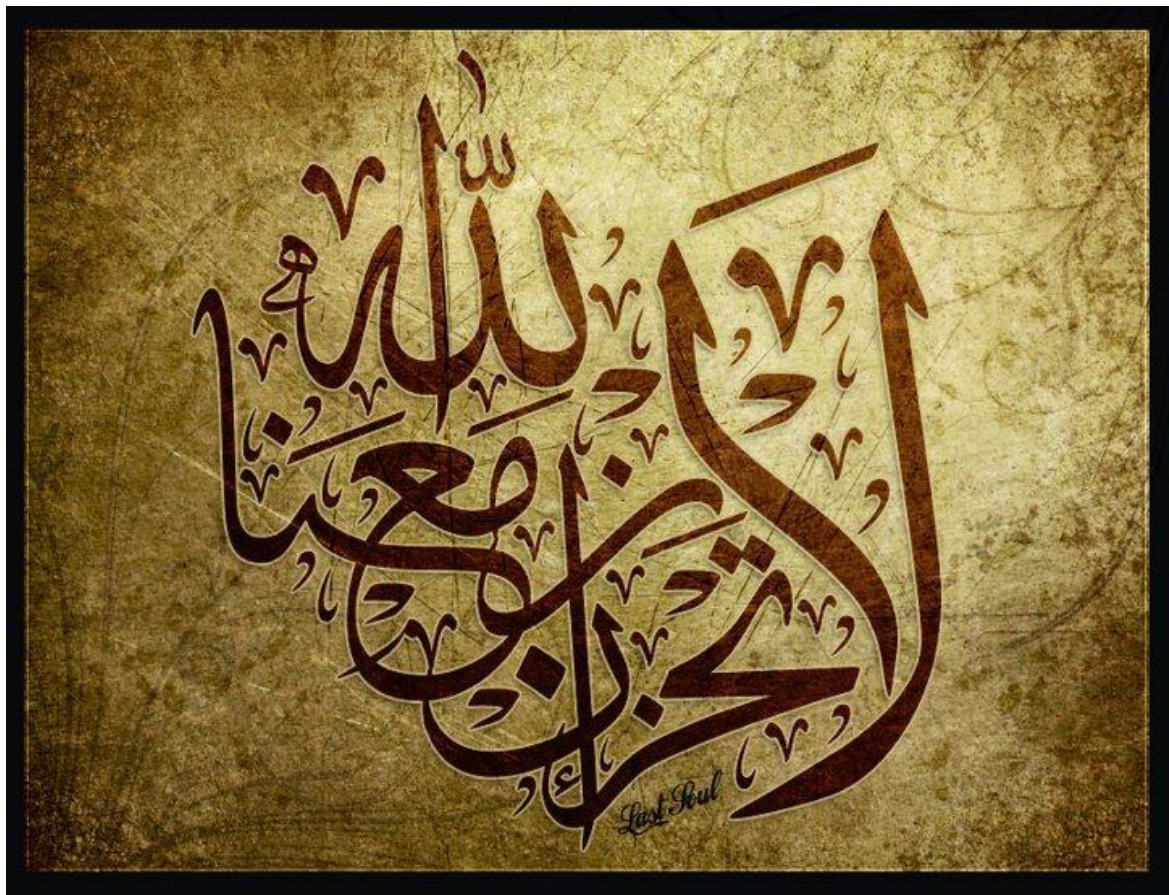 لا تحزن إن الله معنا
Last Soul